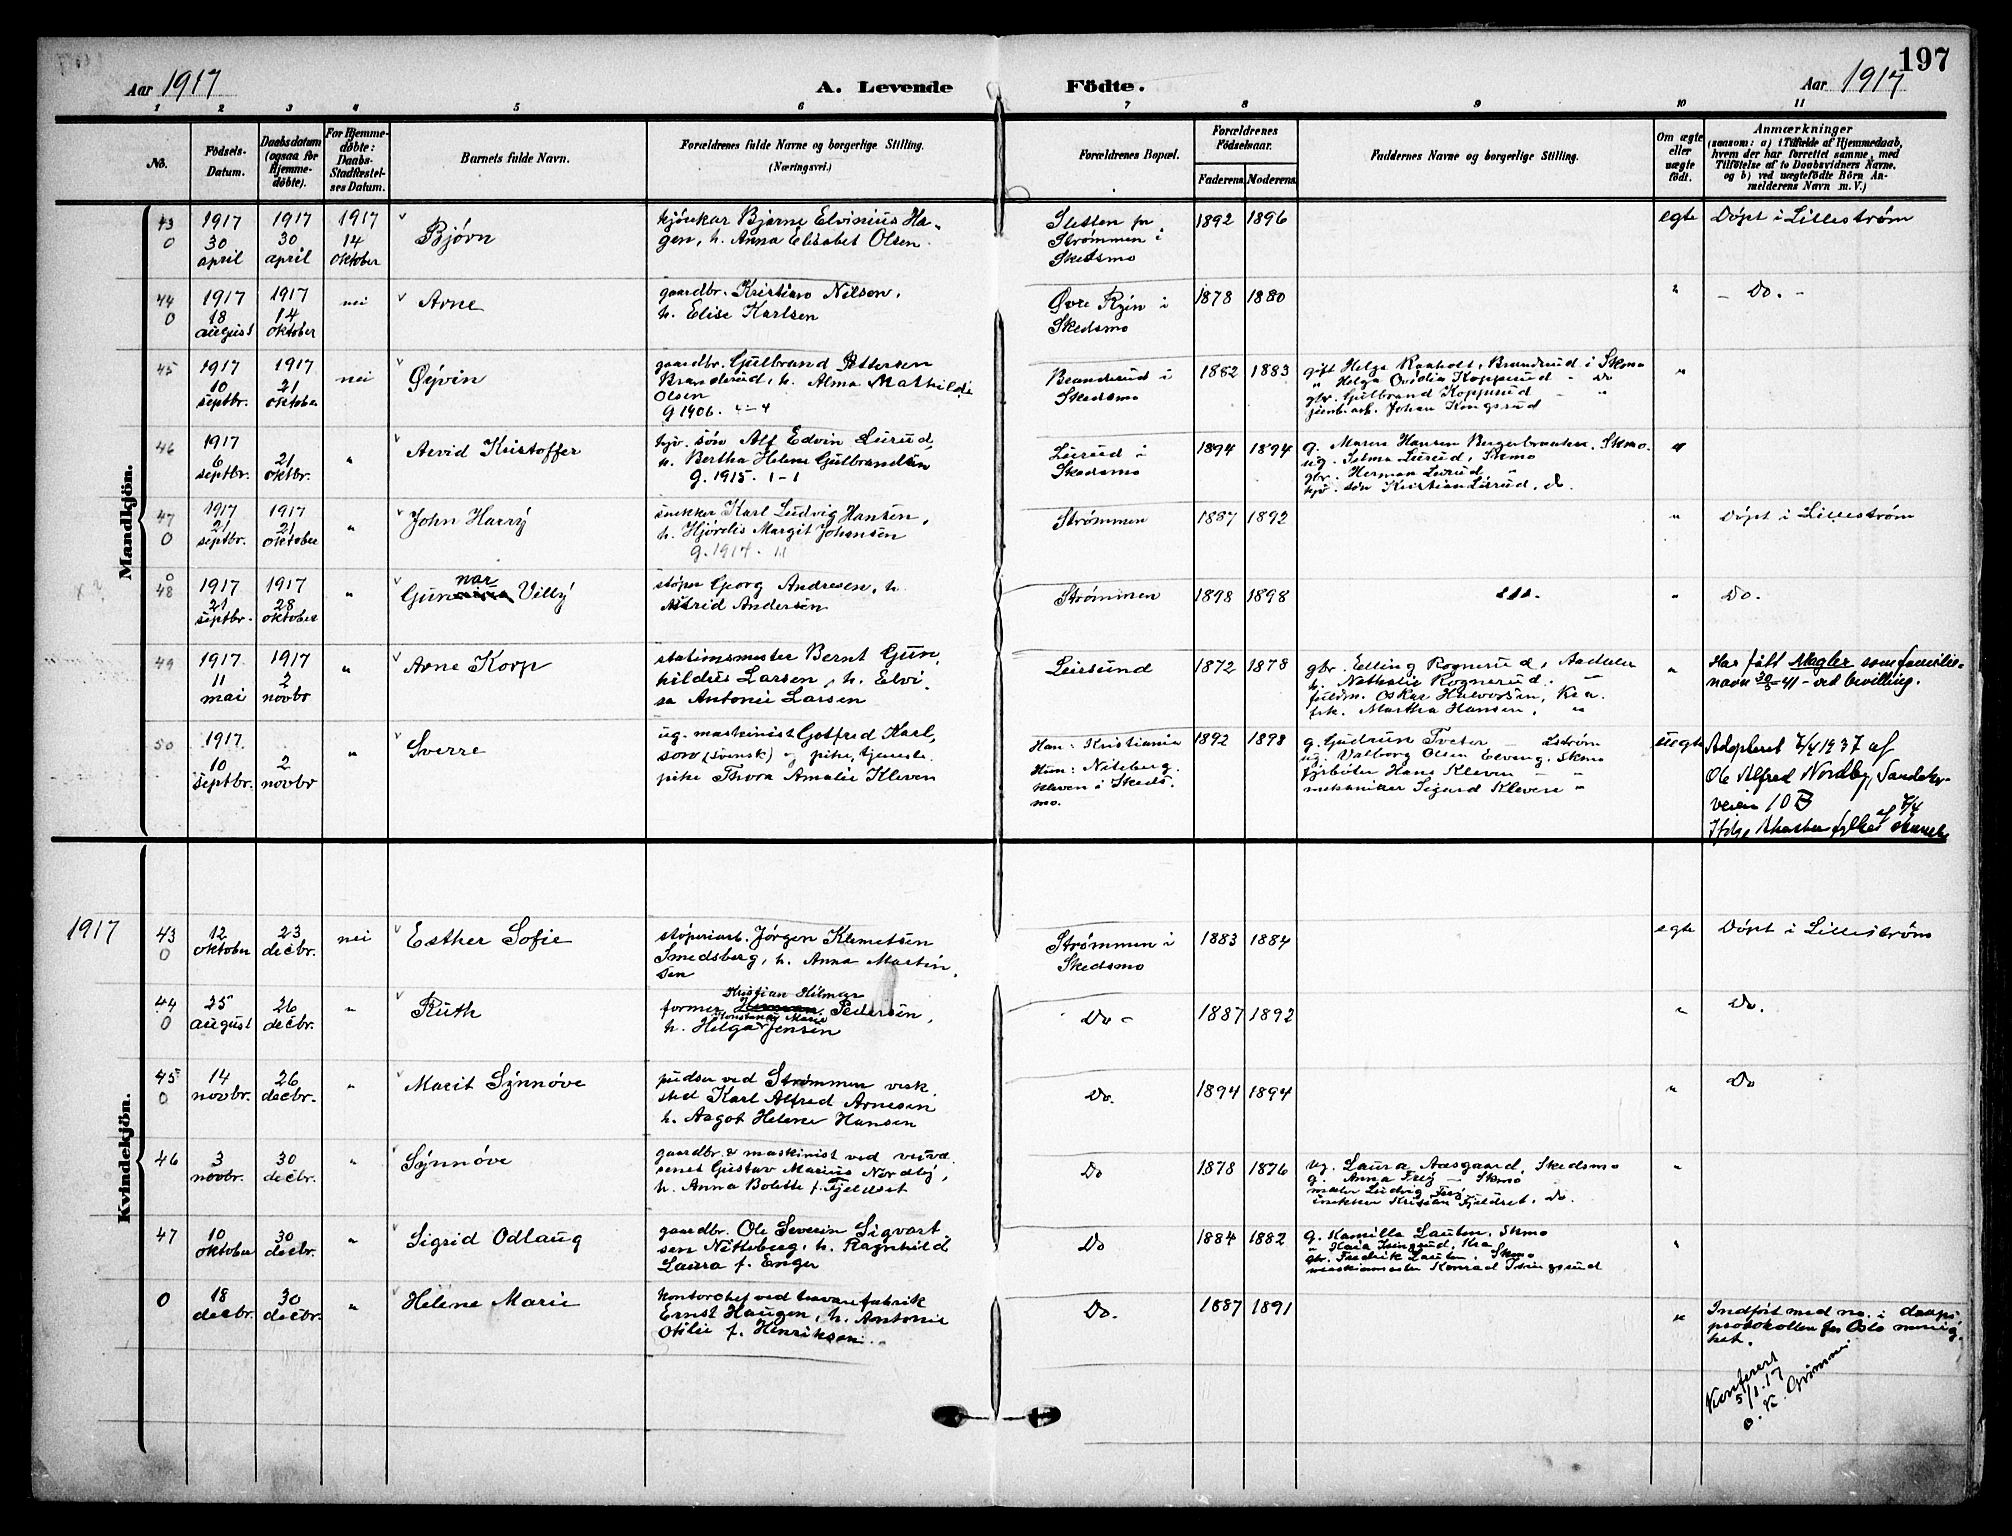 197
Aar 1917
A. Levende
Födte.
Aar 1917
1 2 3 4 5 6 7 8 9 10 11
No.
Födsels-
Datum.
Daabsdatum
(ogsaa for
Hjemme-
döbte).
For Hjemme-
döbte:
Daabs-
Stadfæstel-
ses Datum.
Barnets fulde Navn.
Forældrenes fulde Navne og borgerlige Stilling.
(Næringsvei.)
Forældrenes Bopæl.
Forældrenes
Födselsaar.
Faderens
Moderens
Faddernes Navne og borgerlige Stilling.
Om ægte
eller
uægte
födt.
Anmærkninger
(saasom: a) i Tilfælde af Hjemmedaab,
hvem der har forrettet samme, med
Tilföielse af to Daabsvidners Navne.
og b) ved uægtefödte Börn An-
melderens Navn m. V.)
Mandkjön.
43
0
1917
30
april
1917
30
april
1917
14
oktober
Bjørn
Bjarne Elvinius Ha-
gen, h. Anna Elisabet Olsen.
Sletten pr
Strømmen i
Skedsmo
1892 1896
egte
Døpt i Lillestrøm
44
0
1917
18
august
1917
14
oktober
nei
Arne
gaardbr. Kristian Nilsen,
h. Elise Karlsen
Øvre Ryin i
Skedsmo
1878 1880
"
- Do. -
45
1917
10
septbr.
1917
21
oktober
nei
Øyvin
gaardbr. Gulbrand Pettersen
Branderud, h. Alma Mathilde
Olsen
g 1906.
Branderud i
Skedsmo
1882 1883
gift Helga Raaholt, Branderud i Skmo
" Helga Ovidia Kopperud - do
gbr. Gulbrand Kopperud - "
jernb.arb. Johan Kongsrud
"
46
1917
6
septbr.
21
oktbr.
"
Arvid Kristoffer
hjv. søn Alf Edvin Lurud,
h. Bertha Helene Gulbrandsen
g. 1915. 1-1
Lurud i
Skedsmo
1894 1894
g. Maren Hansen Skmo.
ug. Selma Lurud, Skmo
gbr. Herman Lurud "
hjv. søn Kristian Lurud, do.
"
47
0
1917
21
septbr.
1917
21
oktober
"
John Harry
snekker Karl Ludvig Hansen,
h. Hjørdis Margit Johansen
g. 1914. 11
Strømmen
1887 1892
"
Døpt i Lillestrøm
0
48
1917
21
septbr.
1917
28
oktober
"
Gunnar Villy
støper Georg Andresen, h.
Astrid Andersen
Strømmen
1898 1898
"
Do.
49
1917
11
mai
1917
2
novbr
"
Arne Korp
stationsmester Bernt Gun.
hildus Larsen, h. Elvi.
se Antonie Larsen
Leirsund
1872 1878
gbr. Elling Rognerud, Aadalen
h. Nathalie Rognerud. -
fuldm. Oskar Halvorsen, Kra.
frk. Martha Hansen, "
"
Har fått Nagler som familie-
navn 30/5-41 - ved bevilling.
50
1917
10
septbr
2
novbr
"
Sverre
ug. maskinist Gotfred Karl,
son (svensk) og pike, tjeneste.
pike Thora Amalie Kleven
Han: Kristiania
Hun: Niteberg.
kleven i Skeds,
mo.
1892 1898
g. Gudrun Tveter - Lstrøm
ug. Valborg Olsen Elveng, Skmo
fyrbøter Hans Kleven - "
mekaniker Sigurd Kleven "
uegte
Adoptert 7/4 1937 af
Ole Alfred Nordby,
veien 10 B
Kvindekjön.
1917
43
0
12
oktober
23
decbr.
nei
Esther Sofie
støperiarb. Jørgen Klemetsen
Smedsberg, h. Anna Martin,
sen
Strømmen i
Skedsmo
1883 1884
egte
Døpt i Lillestrøm
44
0
25
august
26
decbr.
"
Ruth
Kristian Hilmar
former Pedersen,
Konstanse Marie
h. Helga Jensen
Do -
1887 1892
"
Do.
45
0
14
novbr.
26
decbr.
"
Marit Synnøve
pudser ved Strømmen verk
sted Karl Alfred Arnesen
h. Aagot Helene Hansen
Do.
1894 1894
"
Do
46
3
novbr.
30
decbr.
"
Synnøve
gaardbr. & maskinist ved
senet Gustav Marius Nordby,
h. Anna Bolette f. Fjeldset
Do
1878 1876
ug. Laura Aasgaard, Skedsmo
g. Anna Frey - Skmo
maler Ludvig Frey
snekker Kristian Fjeldset, do.
"
47
10
oktober
30
decbr.
"
Sigrid Odlaug
gaardbr. Ole Severin Sigvart
sen Nitteberg, h. Ragnhild
Laura f. Enger
Do
1884 1882
g. Kamilla Lauten, Skmo
" Kaia Isingrud, Kra
gbr. Fredrik Lauten, Skmo
maskinmester Konrad Isingrud
"
0
18
decbr.
30
decbr.
"
Helene Marie
kontorchef ved travarefabrik
Ernst Haugen, h. Antonie
Otilie f. Henriksen.
Do.
1887 1891
"
Indført med no. i daaps
protokollen for Oslo menig
het.
Konferert
5/1.17
O. K. Grimnes